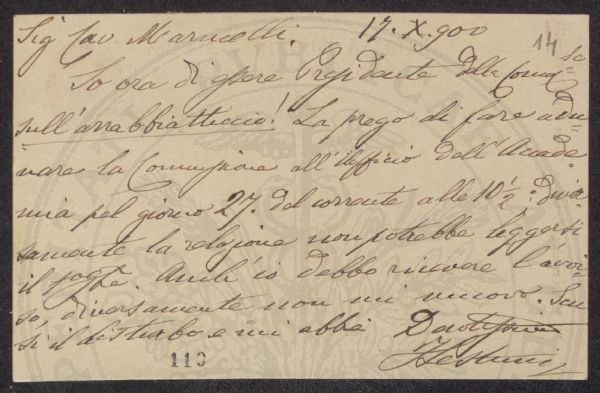 Sig Cav. Marucelli. 17. X. 900 14
So ora di essere Presidente della Commis=ne
sull'arrabbiaticcio! La prego di fare adu=
nare la Commissione all'Ufficio dell'Accade=
mia pel giorno 27. del corrente alle 10 1/2: diver=
samente la relazione non potrebbe leggersi
il Anch'io debbo ricevere l'avvi=
so, diversamente non mi muovo. Scu=
si il disturbo e mi abbia
110